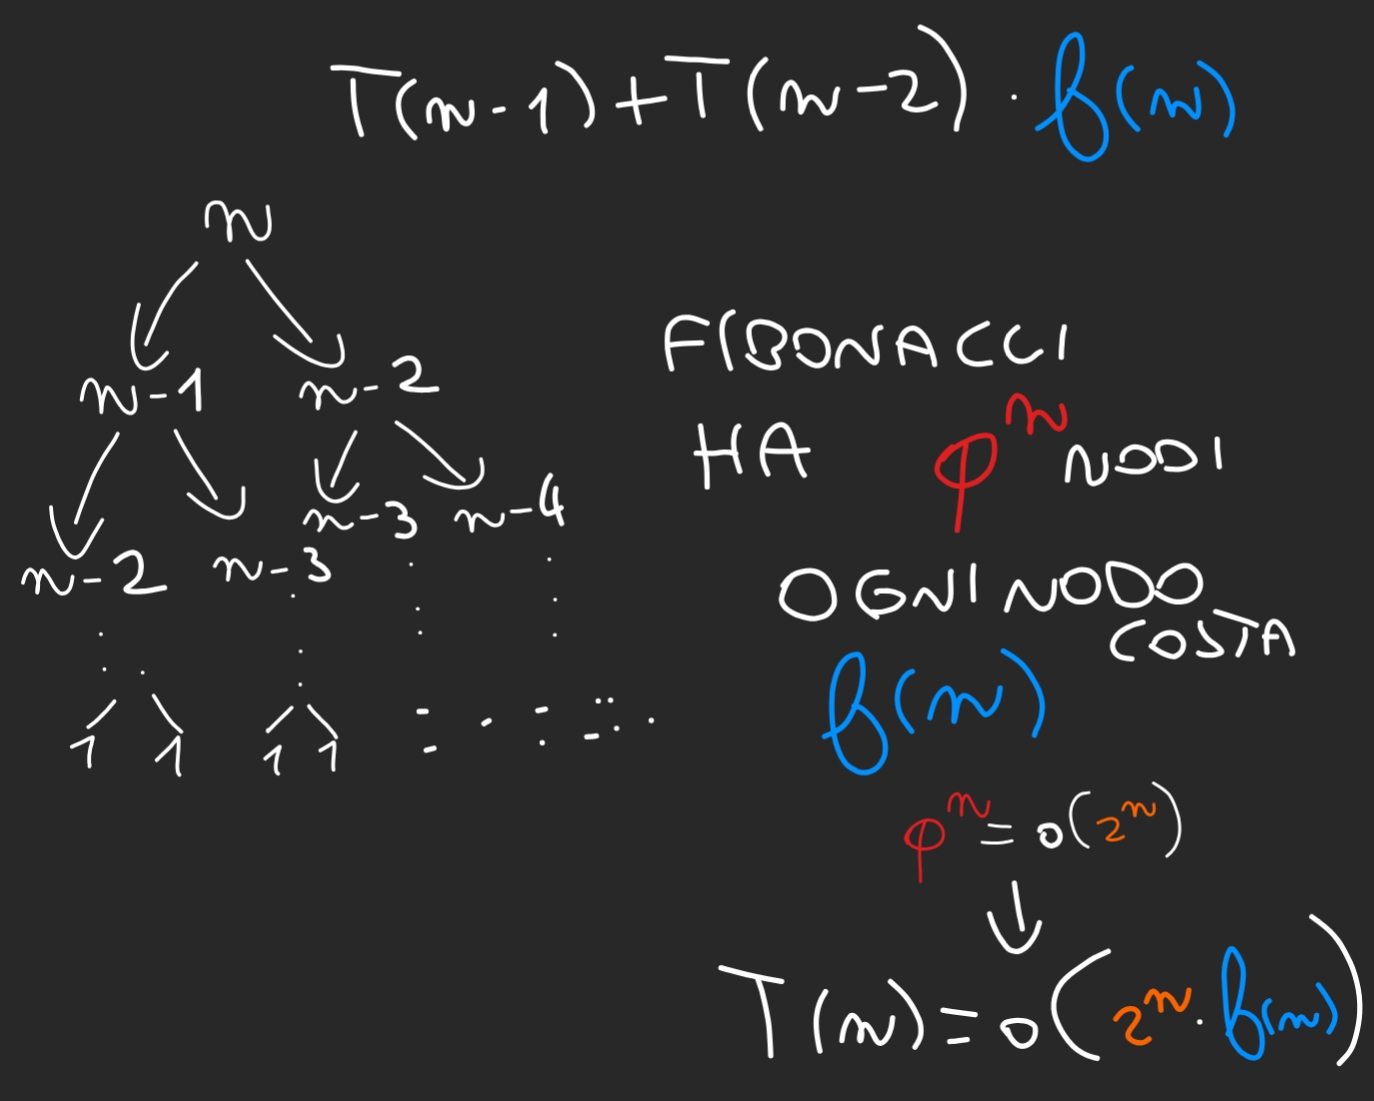 T(n-1)+T(n-2) · f(n)
n
n-1 n-2
n-3 n-4
n-2 n-3
1 1 1 1
FIBONACCI
HA φ^n NODI
OGNI NODO
COSTA
f(n)
φ^n = o(2^n)
T(n) = o(2^n · f(n))